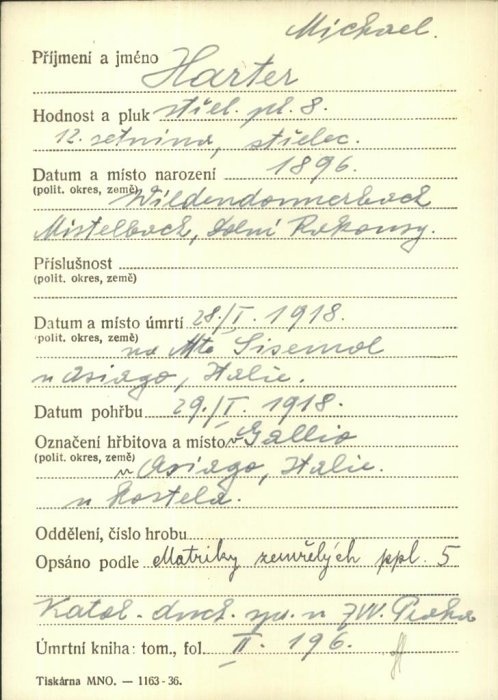 Michael.
Příjmení a jméno Harter
Hodnost a pluk střel. pl. 8.
12. setnina, střelec.
Datum a místo narození 1896.
(polit. okres, země) Wildendonnerbach
Mistelbach, Dolní Rakousy.
Příslušnost
(polit. okres, země)
Datum a místo úmrtí 28./I. 1918.
(polit. okres, země) na Mte Sisemol
u Asiago, Italie.
Datum pohřbu 29./I. 1918.
Označení hřbitova a místo v Gallio
(polit. okres, země) u Asiago, Italie.
u kostela.
Oddělení, číslo hrobu
Opsáno podle Matriky zemřelých ppl. 5
Katol. duch. sp. u ZVV. Praha
Úmrtní kniha: tom., fol. II. 196.
Tiskárna MNO. — 1163-36.